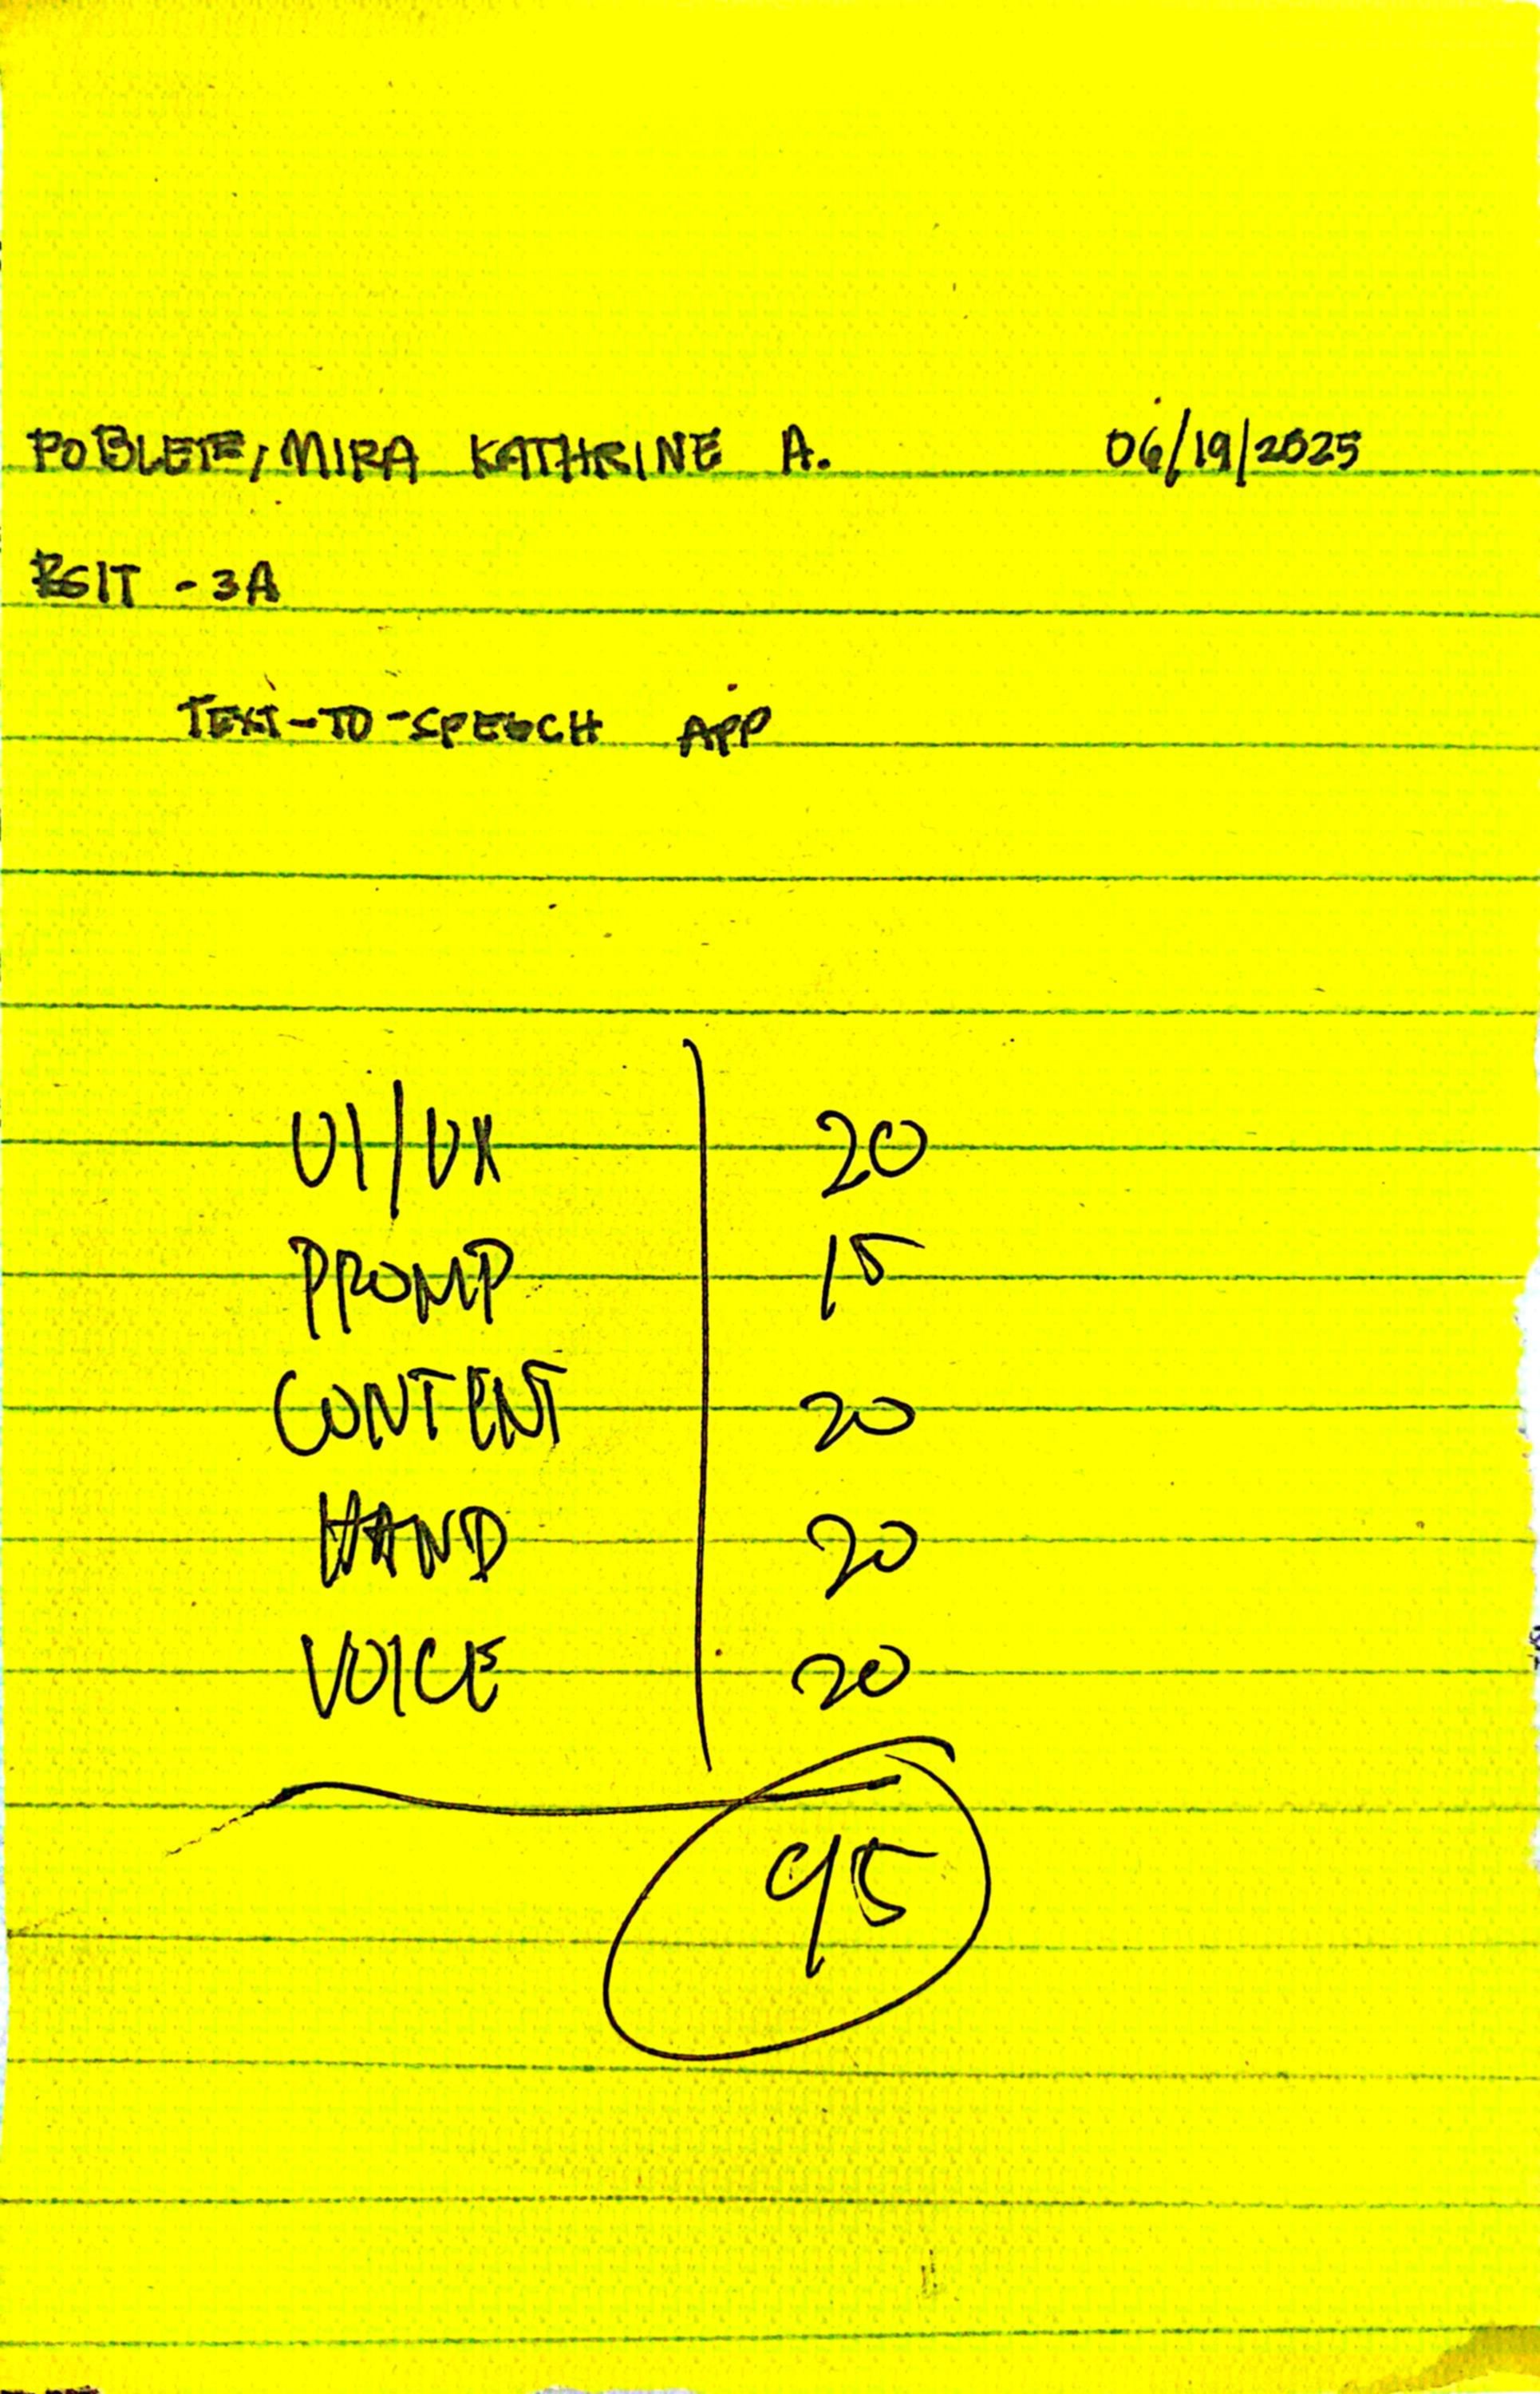 POBLETE, MIRA KATHRINE A. 06/19/2025
BSIT - 3A
TEXT-TO-SPEECH APP
UI/UX 20
PROMP 15
CONTENT 20
HAND 20
VOICE 20
95